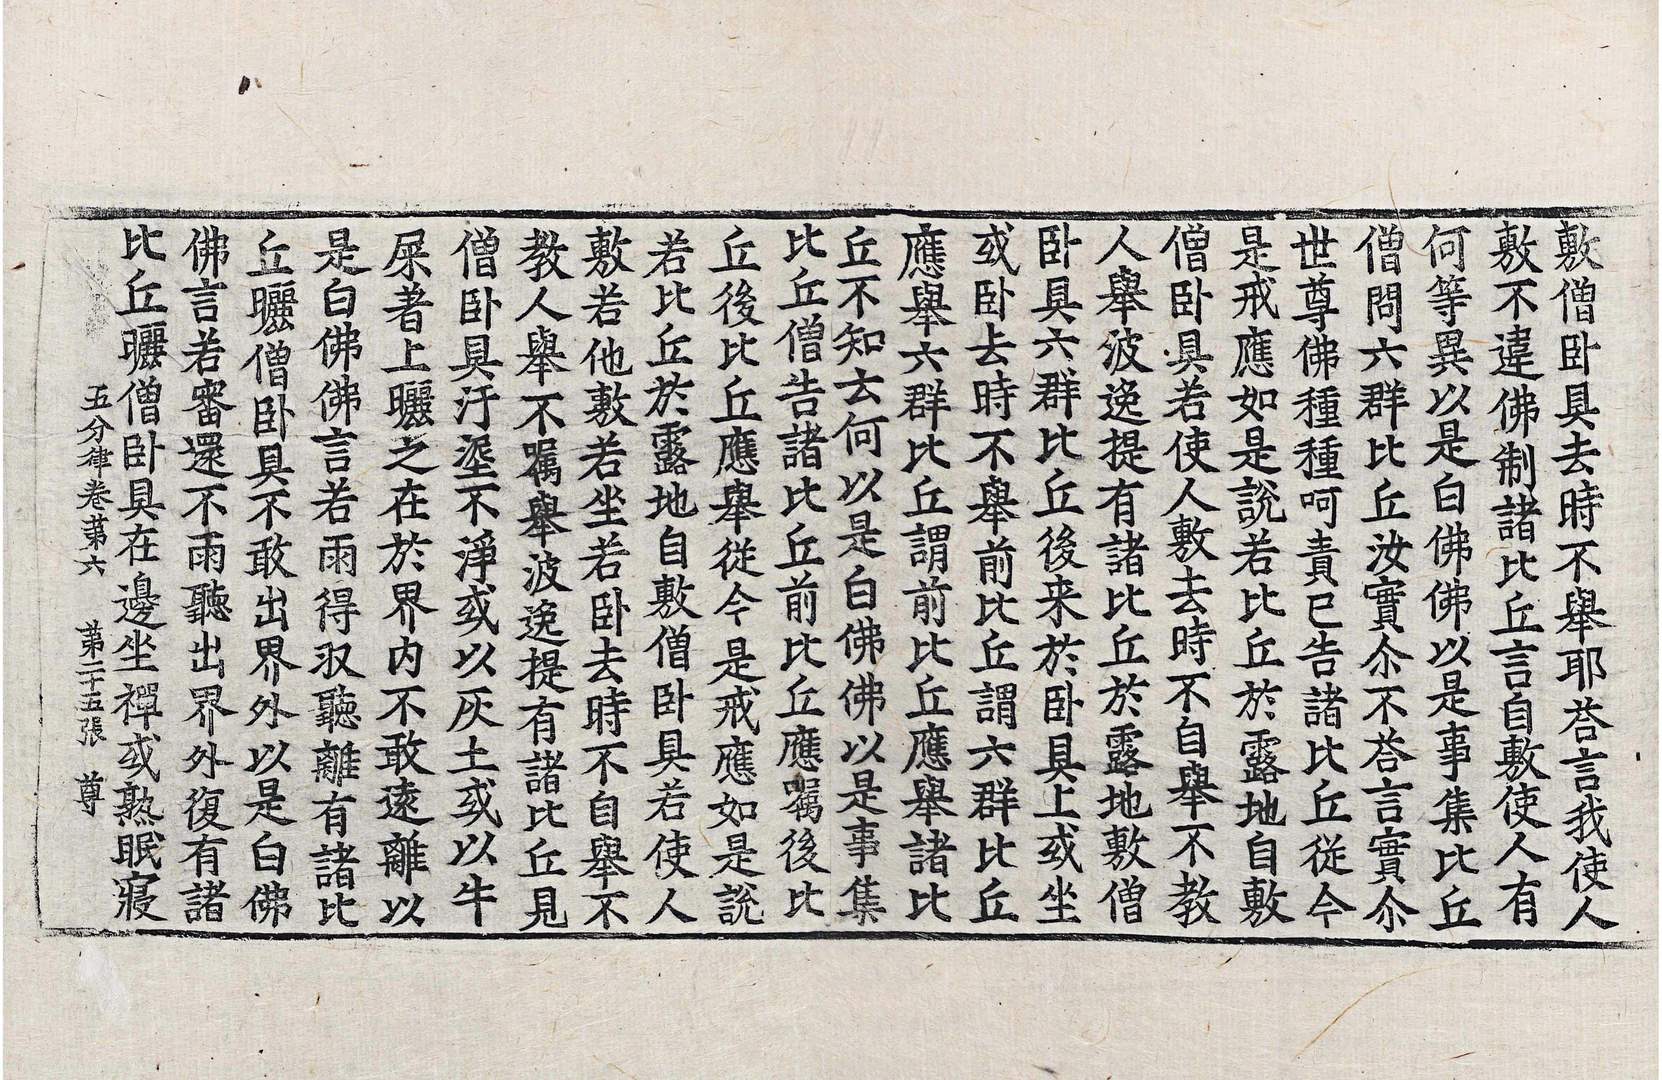 敷僧卧具去時不舉耶荅言我使人
敷不違佛制諸比丘言自敷使人有
何等異以是白佛佛以是事集比丘
僧問六群比丘汝實尒不荅言實尒
世尊佛種種呵責已告諸比丘從今
是戒應如是說若比丘於露地自敷
僧卧具若使人敷去時不自舉不教
人舉波逸提有諸比丘於露地敷僧
卧具六群比丘後来於卧具上或坐
或卧去時不舉前比丘謂六群比丘
應舉六群比丘謂前比丘應舉諸比
丘不知云何以是白佛佛以是事集
比丘僧告諸比丘前比丘應囑後比
丘後比丘應舉從今是戒應如是說
若比丘於露地自敷僧卧具若使人
敷若他敷若坐若卧去時不自舉不
教人舉不囑舉波逸提有諸比丘見
僧卧具汙埿不淨或以灰土或以牛
屎著上曬之在於界内不敢遠離以
是白佛佛言若雨得㕛聽離有諸比
丘曬僧卧具不敢出界外以是白佛
佛言若審還不雨聽出界外復有諸
比丘曬僧卧具在邊坐禪或熟眠寢
五分律卷苐六 第二十五張 尊